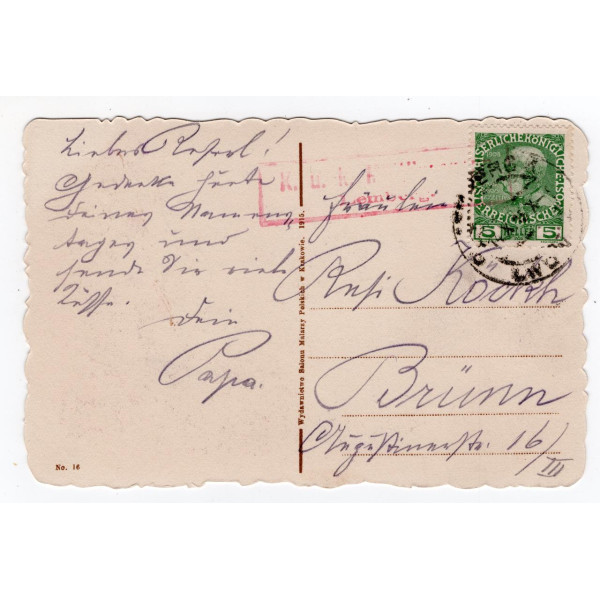 Liebes Reserl!
Gedenke heute
deines Namens
tages und
sende Dir viele
Küsse.
Dein
Papa.
No. 16
Wydawnictwo Salonu Malarzy Polskich w Krakowie. 1915.
K. u. k.
Lemberg
Fräulein
Resi
Brünn
Augustinerstr. 16/
III
KAISERLICHE KÖNIGLICHE
ÖSTERREICHISCHE
5 5
LWÓW